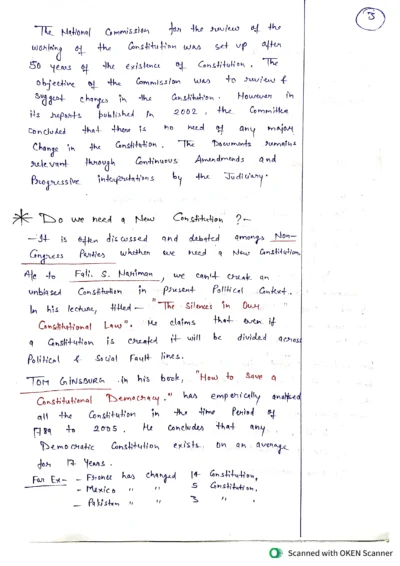 3
The National Commission for the review of the
working of the Constitution was set up after
50 years of the existence of Constitution. The
objective of the Commission was to review &
suggest changes in the Constitution. However in
its reports published in 2002, the Committee
concluded that there is no need of any major
Change in the Constitution. The Documents remains
relevant through Continuous Amendments and
Progressive interpretations by the Judiciary.
* Do we need a New Constitution ? -
- It is often discussed and debated amongs Non-
Congress Parties whether we need a New Constitution
A/c to Fali. S. Nariman, we can't create an
unbiased Constitution in present Political Context.
In his lecture, titled - "The Silences in Our
Constitutional Law". He claims that even if
a Constitution is created it will be divided across
Political & Social Fault lines.
TOM GINSBURG in his book, "How to Save a
Constitutional Democracy." has emperically analysed
all the Constitution in the time Period of
1789 to 2005. He concludes that any
Democratic Constitution exists on an average
for 17 Years.
For Ex- - France has changed 14 Constitution,
- Mexico " " 5 Constitution.
- Pakistan " " 3 " .
Scanned with OKEN Scanner